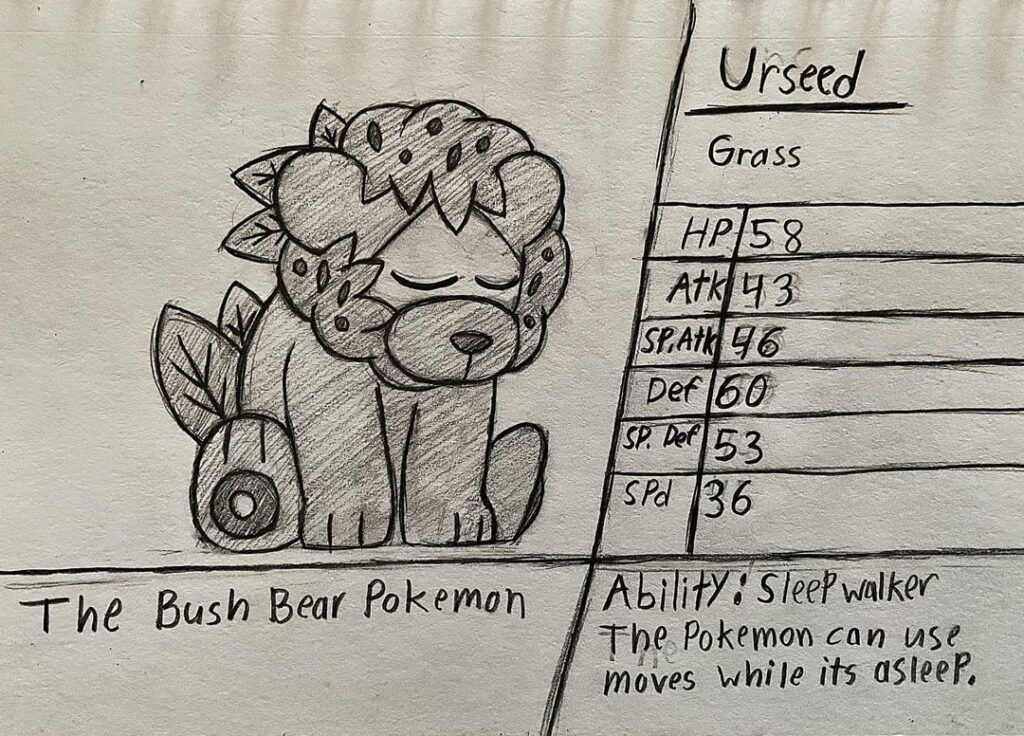 Urseed
Grass
HP 58
Atk 43
SP. Atk 46
Def 60
SP. Def 53
SPd 36
The Bush Bear Pokemon
Ability: Sleepwalker
The Pokemon can use
moves while its asleep.